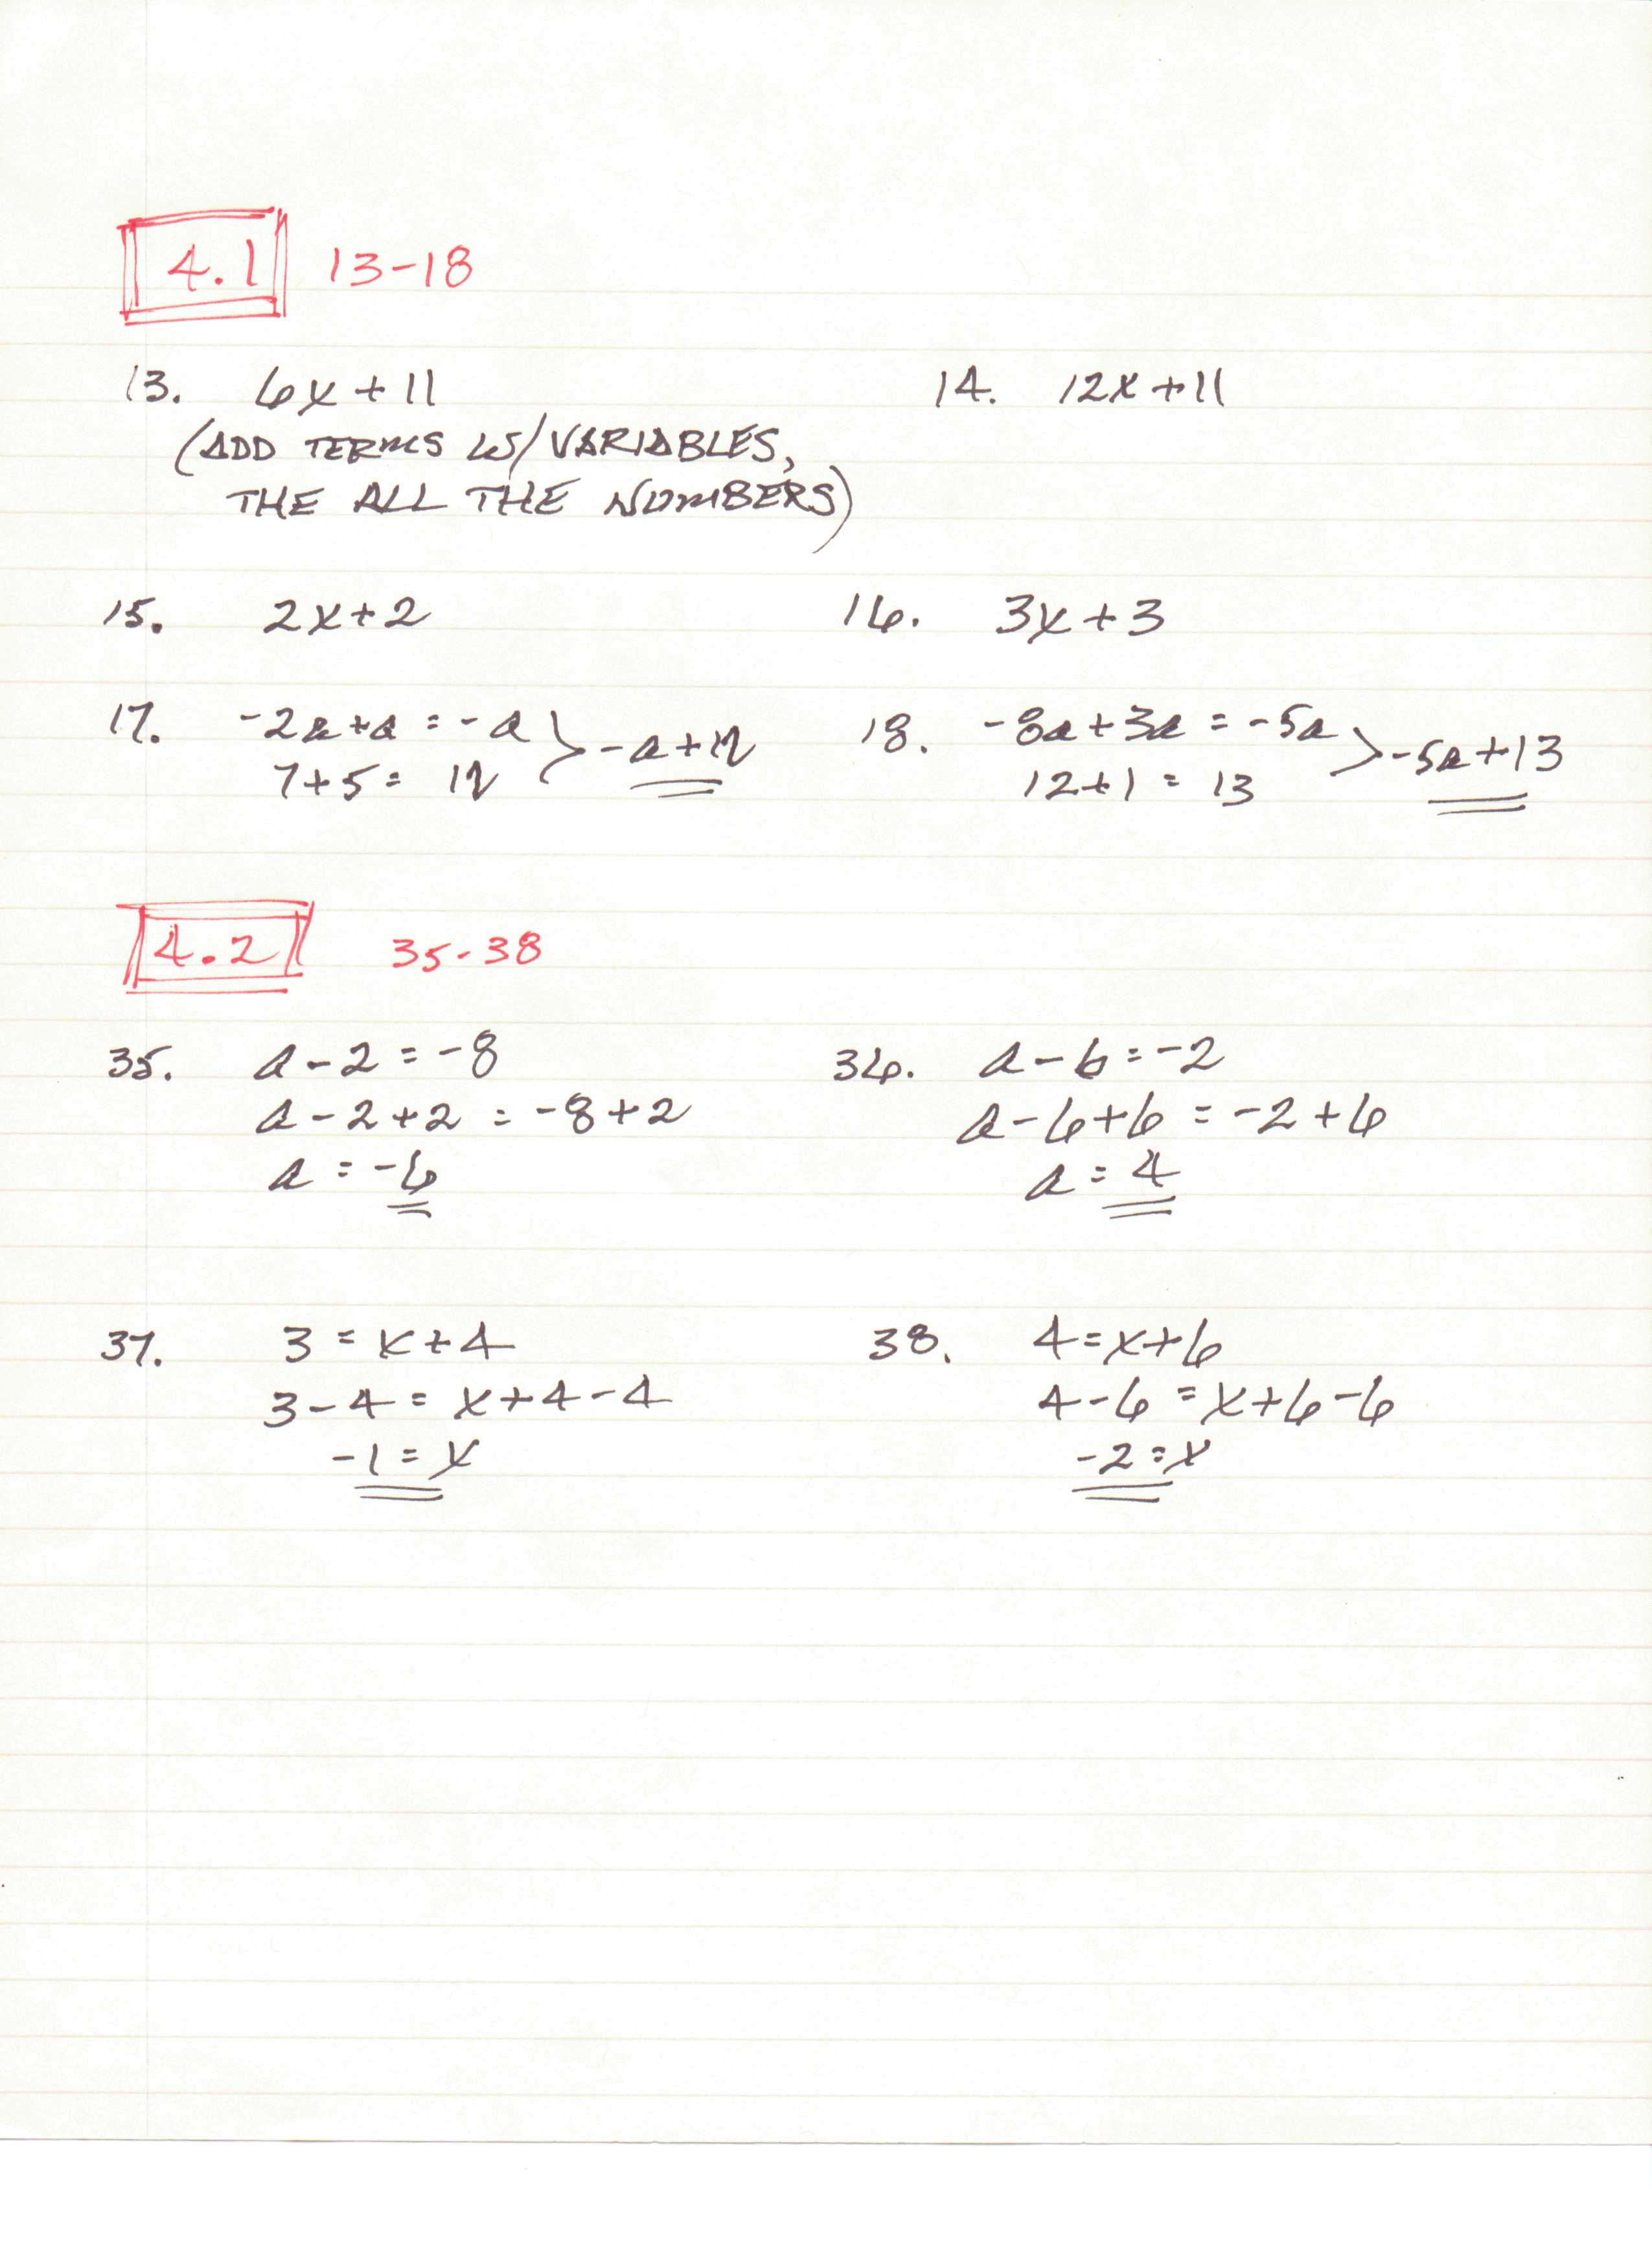 4.1 13-18
13. 6x+11 14. 12x+11
(ADD TERMS W/VARIABLES,
THE ALL THE NUMBERS)
15. 2x+2 16. 3x+3
17. -2a+a = -a > -a+12 18. -8a+3a = -5a > -5a+13
7+5 = 12 12+1 = 13
4.2 35-38
35. a-2 = -8 36. a-6 = -2
a-2+2 = -8+2 a-6+6 = -2+6
a = -6 a = 4
37. 3 = x+4 38. 4=x+6
3-4 = x+4-4 4-6 = x+6-6
-1 = x -2 = x